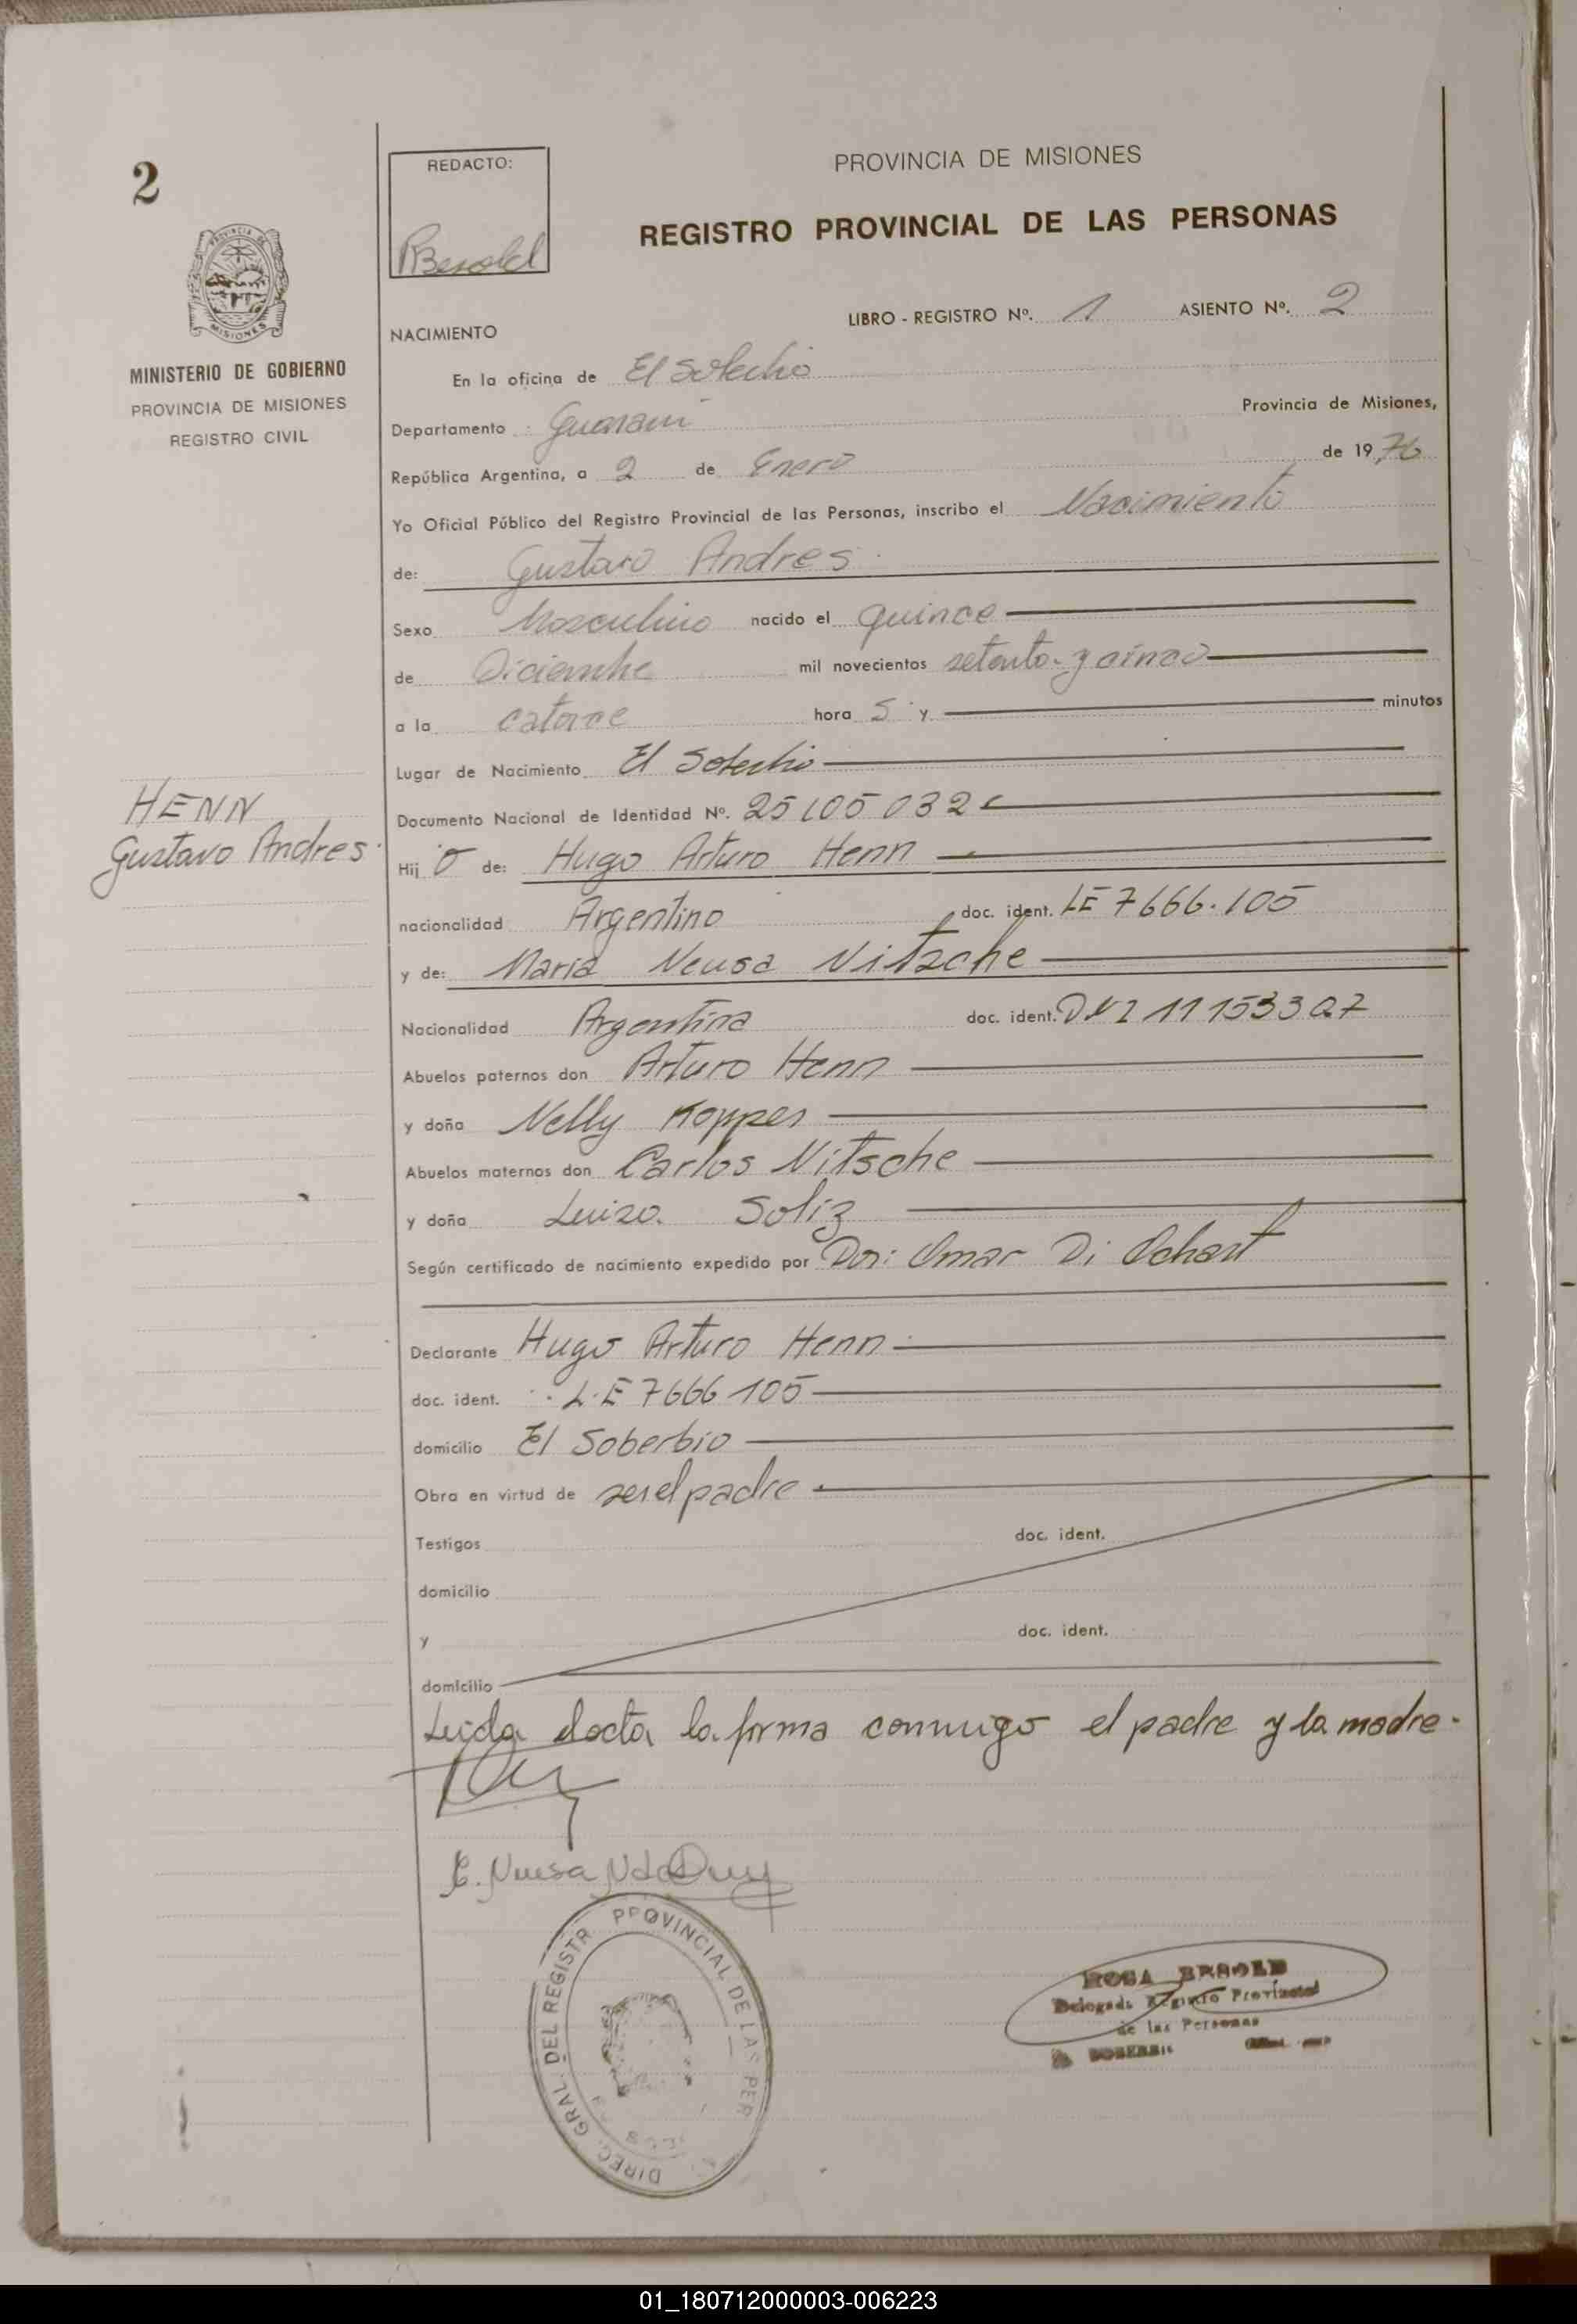 2
PROVINCIA DE
MISIONES
MINISTERIO DE GOBIERNO
PROVINCIA DE MISIONES
REGISTRO CIVIL
HENN
Gustavo Andres
REDACTO:
RBesold
PROVINCIA DE MISIONES
REGISTRO PROVINCIAL DE LAS PERSONAS
LIBRO - REGISTRO Nº. 1 ASIENTO Nº. 2
NACIMIENTO
En la oficina de El Soberbio
Departamento Guarani Provincia de Misiones,
República Argentina, a 2 de Enero de 1976
Yo Oficial Público del Registro Provincial de las Personas, inscribo el Nacimiento
de: Gustavo Andres
Sexo Masculino nacido el quince
de Diciembre mil novecientos setenta y cinco
a la catorce hora s y minutos
Lugar de Nacimiento El Soberbio
Documento Nacional de Identidad Nº. 25105032
Hij o de: Hugo Arturo Henn
nacionalidad Argentino doc. ident. LE 7666.105
y de: Maria Neusa Nitzche
Nacionalidad Argentina doc. ident. DNI
Abuelos paternos don Arturo Henn
y doña Nelly Koppes
Abuelos maternos don Carlos Nitsche
y doña Luiza Soliz
Según certificado de nacimiento expedido por Dor: Omar Di
Declarante Hugo Arturo Henn
doc. ident. L.E 7666 105
domicilio El Soberbio
Obra en virtud de ser el padre
Testigos doc. ident.
domicilio
y doc. ident.
domicilio
Leida el acta la firma conmigo el padre y la madre.
DIREC. GRAL. DEL REGISTR PROVINCIAL DE LAS PER
ROSA BESOLD
Delegada Registro Provincial
de las Personas
SOBERBIO
01_180712000003-006223